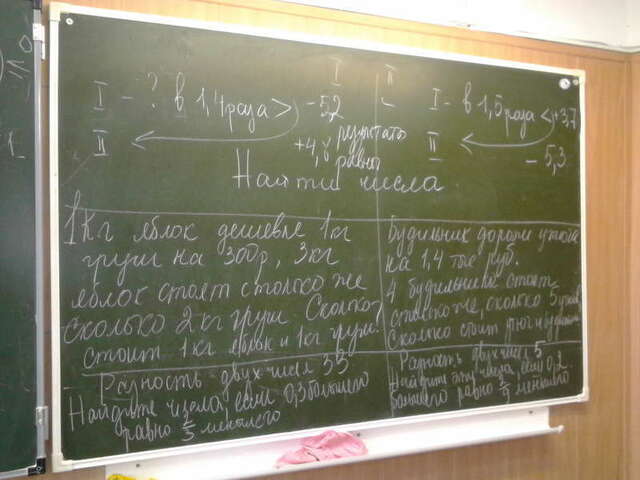 I II
I - ? в 1,4 раза > -5,2
II +4,8
результаты
равны
I - в 1,5 раза < +3,7
II - 5,3
Найти числа
1 кг яблок дешевле 1 кг
груш на 300р, 3 кг
яблок стоят столько же
сколько 2 кг груш. Сколько
стоит 1 кг яблок и 1 кг груш?
Будильник дороже утюга
на 1,4 тыс руб.
4 будильника стоят
столько же, сколько 5 утюгов
Сколько стоит утюг и будильник
Разность двух чисел 33
Найдите числа, если 0,3 большего
равно 2/3 меньшего
Разность двух чисел 5
Найдите эти числа, если 0,2
большего равно 2/9 меньшего